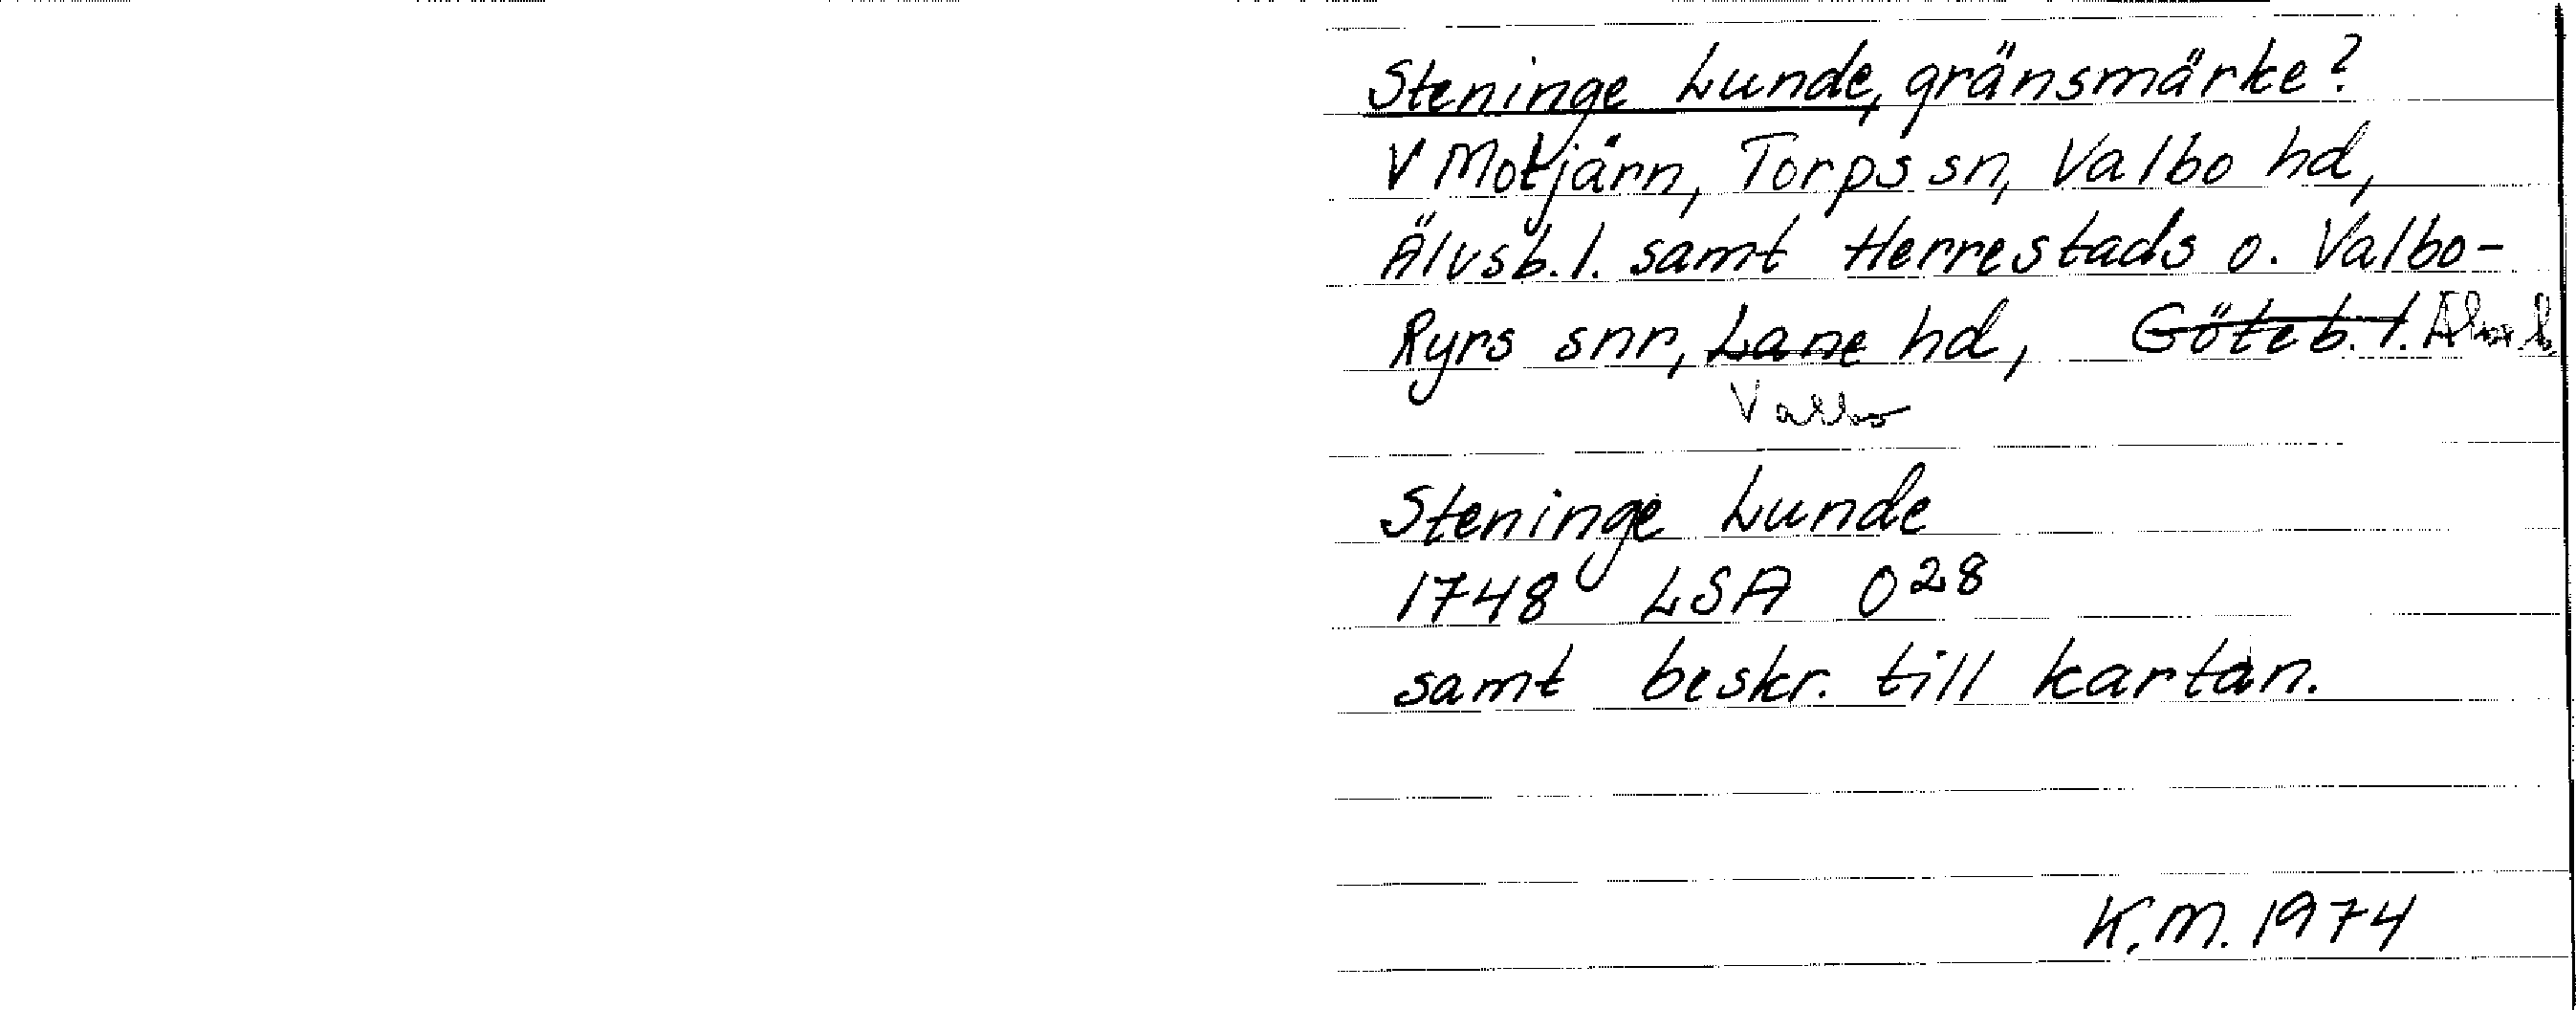 Steninge Lunde, gränsmärke?
V Motjärn, Torps sn, Valbo hd,
Älvsb. l. samt Herrestads o. Valbo-
Ryrs snr, Lane hd, Göteb. l. Älvsb
Valbo
Steninge Lunde
1748 LSA O28
samt beskr. till kartan.
K.M. 1974